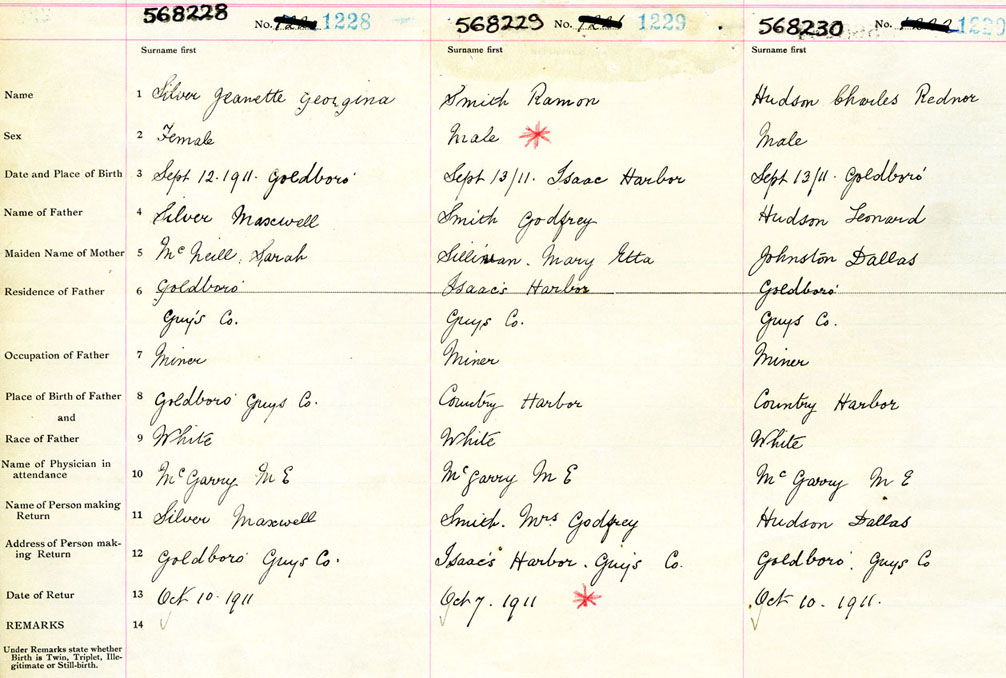 568228 No. 1228 568229 No. 1229 568230 No.
Surname first Surname first Surname first
Name 1 Silver Jeanette Georgina Smith Ramon Hudson Charles Rednor
Sex 2 Female Male Male
Date and Place of Birth 3 Sept 12. 1911. Goldboro' Sept 13/11. Isaac Harbor Sept 13/11. Goldboro'
Name of Father 4 Silver Maxwell Smith Godfrey Hudson Leonard
Maiden Name of Mother 5 McNeill, Sarah Mary Etta Johnston Dallas
Residence of Father 6 Goldboro' Isaac's Harbor Goldboro'
Guy's Co. Guys Co. Guys Co.
Occupation of Father 7 Miner Miner Miner
Place of Birth of Father 8 Goldboro' Guys Co. Country Harbor Country Harbor
and
Race of Father 9 White White White
Name of Physician in
attendance 10 McGarry M E McGarry M E McGarry M E
Name of Person making
Return 11 Silver Maxwell Smith. Mrs Godfrey Hudson Dallas
Address of Person mak-
ing Return 12 Goldboro' Guys Co. Isaac's Harbor. Guy's Co. Goldboro'. Guys Co
Date of Retur 13 Oct 10. 1911 Oct 7. 1911 Oct 10. 1911.
REMARKS 14
Under Remarks state whether
Birth is Twin, Triplet, Ille-
gitimate or Still-birth.